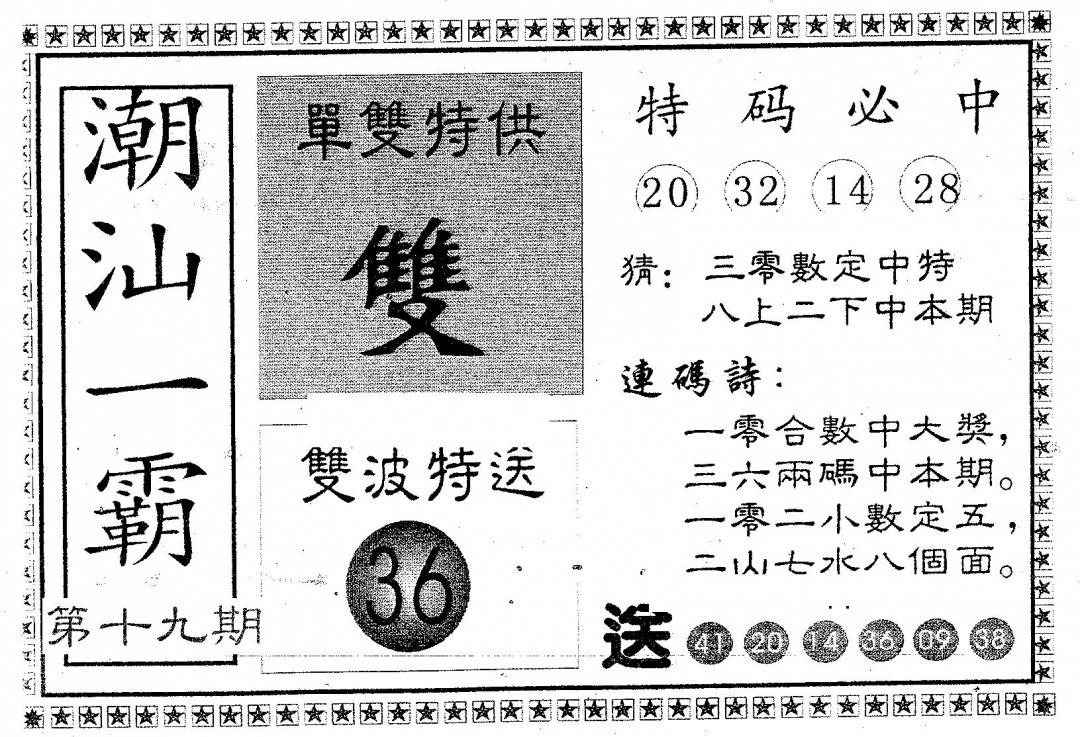 潮汕一霸
第十九期
單雙特供
雙
雙波特送
36
特码必中
20 32 14 28
猜：三零數定中特
八上二下中本期
連碼詩：
一零合數中大獎，
三六兩碼中本期。
一零二小數定五，
二山七水八個面。
送 41 20 14 36 09 38